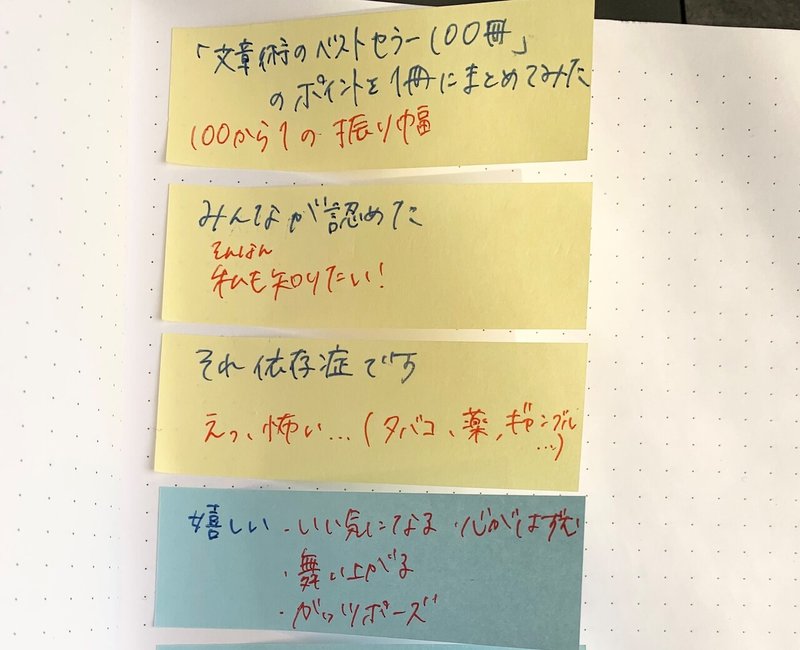 「文章術のベストセラー100冊」
のポイントを1冊にまとめてみた
100から1の振り幅
みんなが認めた
そんなん
私も知りたい!
それ依存症です
えっ、怖い…(タバコ、薬、ギャンブル
…)
嬉しい ・いい気になる ・心がはずむ
・舞い上がる
・ガッツポーズ